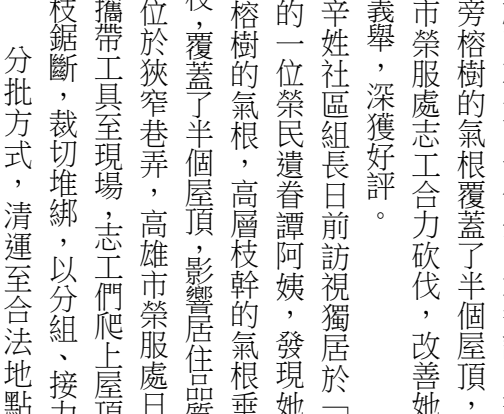 旁榕樹的氣根覆蓋了半個屋頂，
市榮服處志工合力砍伐，改善她
義舉，深獲好評。
辛姓社區組長日前訪視獨居於「
的一位榮民遺眷譚阿姨，發現她
榕樹的氣根，高層枝幹的氣根垂
，覆蓋了半個屋頂，影響居住品質
位於狹窄巷弄，高雄市榮服處日
攜帶工具至現場，志工們爬上屋頂
枝鋸斷，裁切堆綁，以分組、接力
分批方式，清運至合法地點